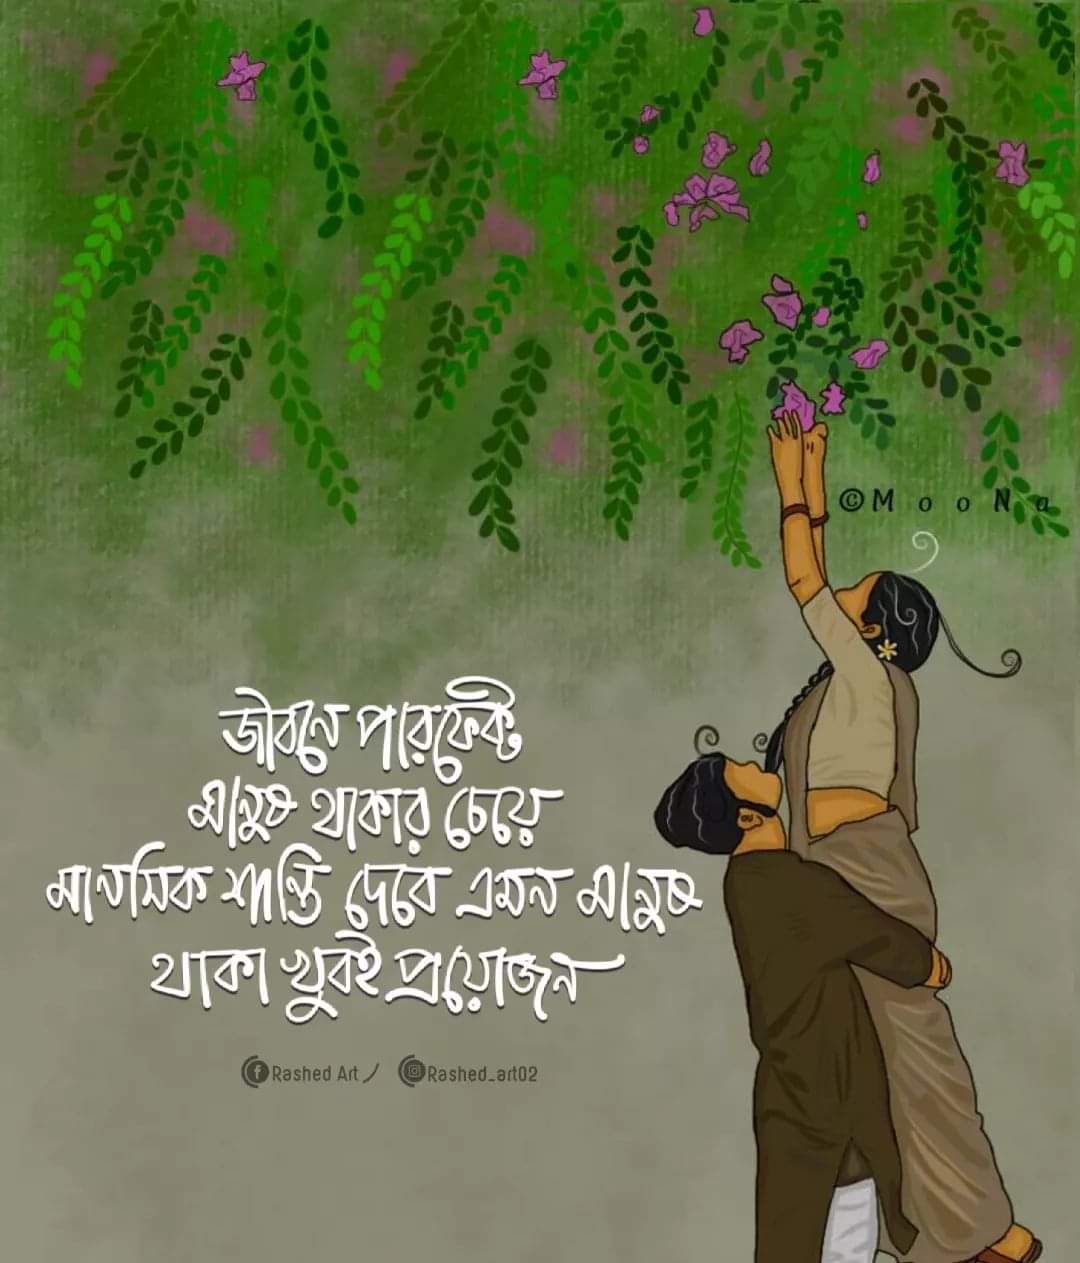 ©MooNa
জীবনে পারফেক্ট
মানুষ থাকার চেয়ে
মানসিক শান্তি দেবে এমন মানুষ
থাকা খুবই প্রয়োজন
Rashed Art / Rashed_art02